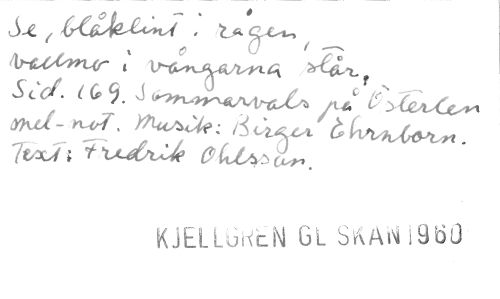 Se, blåklint i rågen,
vallmo i vångarna står.
Sid. 169. Sommarvals på Österlen
mel-not. Musik: Birger Ehrnborn.
Text: Fredrik Ohlsson.
KJELLGREN GL SKÅN 1960